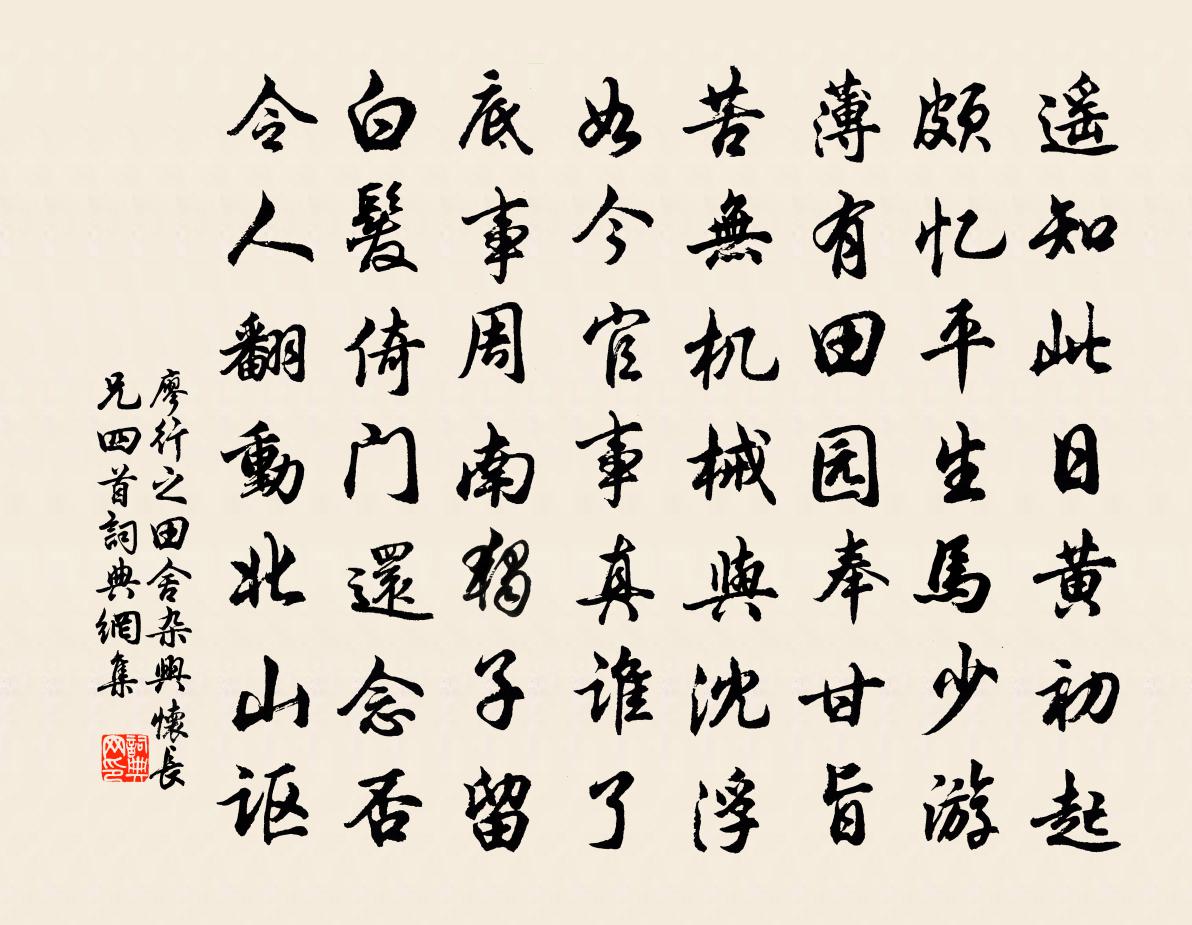 遥知此日黄初起
頗忆平生馬少游
薄有田园奉甘旨
苦無机械與沈浮
如今官事真谁了
底事周南獨子留
白髮倚门還念否
令人翻動北山讴
廖行之田舍杂興懷長
兄四首詞典網集
詞典網印